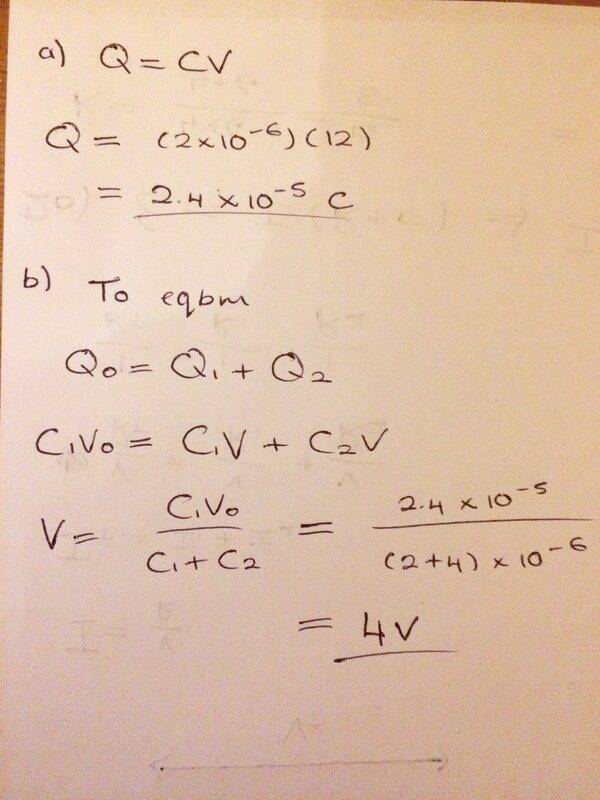 a) Q = CV
Q = (2×10⁻⁶)(12)
= 2.4 × 10⁻⁵ C
b) To eqbm
Q₀ = Q₁ + Q₂
C₁V₀ = C₁V + C₂V
V = C₁V₀ / C₁ + C₂ = 2.4 × 10⁻⁵ / (2+4) × 10⁻⁶
= 4V